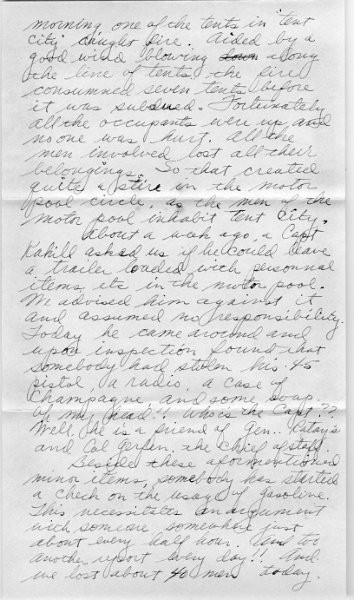 morning one of the tents in "tent
city" caught fire. Aided by a
good wind blowing down along
the line of tents, the fire
consumned seven tents before
it was subdued. Fortunately
all the occupants were up, and
no one was hurt. All the
men involved lost all their
belongings. So that created
quite a stire in the motor
pool circle, as the men of the
motor pool inhabit tent city.
About a week ago, a Capt
Kahill asked us if he could leave
a trailer loaded with personnal
items, etc in the motor pool.
We advised him against it
and assumed no responsibility.
Today he came around and
upon inspection found that
somebody had stolen his 45
pistol, a radio, a case of
champagne, and some soap.
Oh my head!! Who's the Capt.??
Well, he is a friend of Gen..
and Col Gerfen, the chief of staff.
Besides these aformentioned
minor items, somebody has started
a check on the usage of gasoline.
This necessitates an argument
with someone, somewhere just
about every half hour. And too
another report every day!! And
we lost about 40 men today.